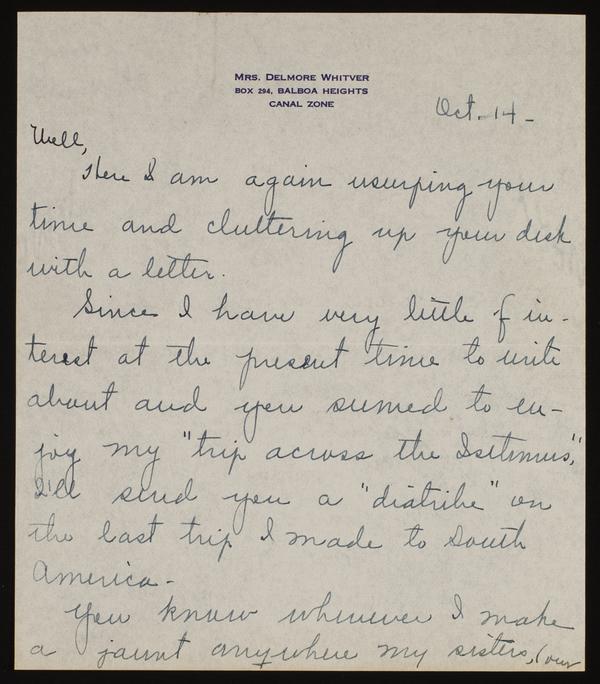 Mrs. Delmore Whitver
Box 294, Balboa Heights
Canal Zone
Oct. 14 -
Well,
Here I am again usurping your
time and cluttering up your desk
with a letter.
Since I have very little of in-
terest at the present time to write
about and you seemed to en-
joy my "trip across the Isthmus,"
I'll send you a "diatribe" on
the last trip I made to South
America -
You know whenever I make
a jaunt anywhere my sisters, (our